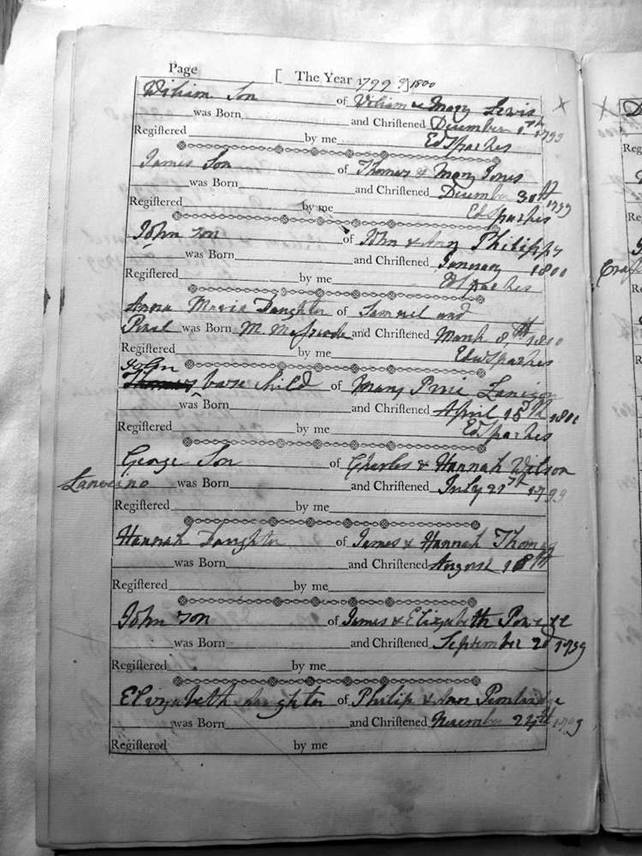 Page [ The Year 1799 & 1800
William Son of William & Mary Lewis
was Born and Chriſtened December 1st 1799
Regiſtered by me Ed Sparkes
James Son of Thomas & Mary Jones
was Born and Chriſtened December 30th 1799
Regiſtered by me Ed Sparkes
John Son of John & Ann Philipps
was Born and Chriſtened January 1800
Regiſtered by me Ed Sparkes
Anna Maria Daughter of Samuel and
was Born and Chriſtened March 8th 1800
Regiſtered by me Edw Sparkes
John
Thomas base child of Mary Price
was Born and Chriſtened April 13th
Regiſtered by me Ed Sparkes
George Son of Charles & Hannah Wilson
was Born and Chriſtened July 21st 1799
Regiſtered by me
Hannah Daughter of James & Hannah Thomas
was Born and Chriſtened August 18th
Regiſtered by me
John Son of James & Elizabeth
was Born and Chriſtened September 1799
Regiſtered by me
Elizabeth daughter of Philip & Ann
was Born and Chriſtened November 24th 1799
Regiſtered by me